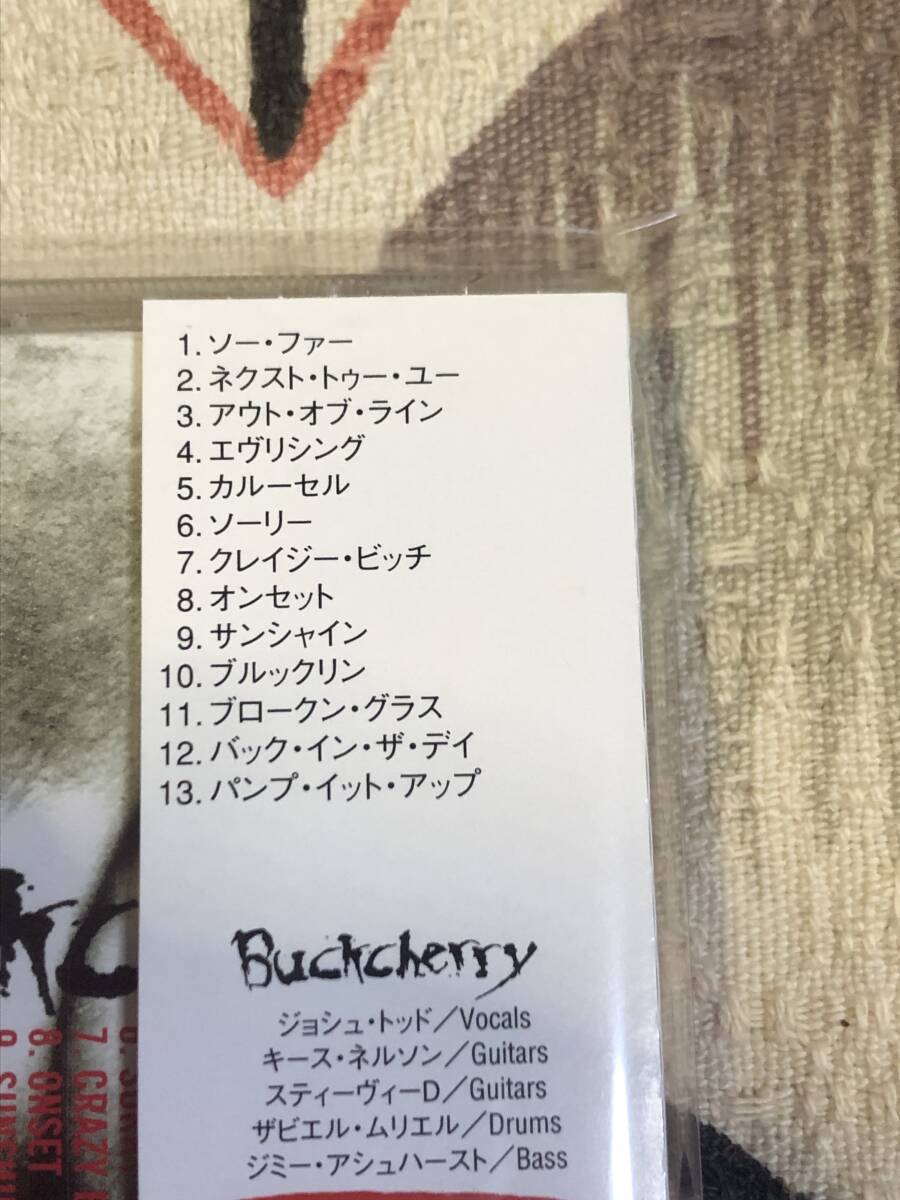 1. ソー・ファー
2. ネクスト・トゥー・ユー
3. アウト・オブ・ライン
4. エヴリシング
5. カルーセル
6. ソーリー
7. クレイジー・ビッチ
8. オンセット
9. サンシャイン
10. ブルックリン
11. ブロークン・グラス
12. バック・イン・ザ・デイ
13. パンプ・イット・アップ
Buckcherry
ジョシュ・トッド／Vocals
キース・ネルソン／Guitars
スティーヴィーD／Guitars
ザビエル・ムリエル／Drums
ジミー・アシュハースト／Bass
7. CRAZY
8. ONSET